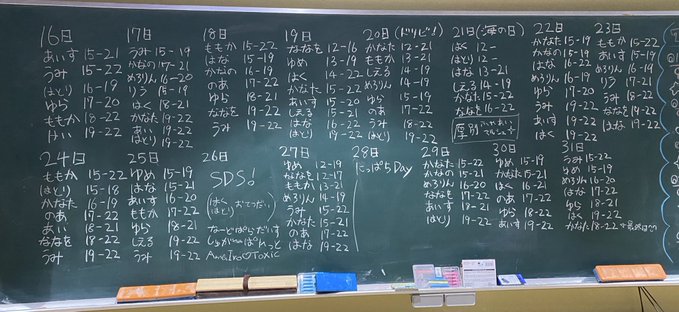 16日
あいす 15-21
うみ 15-22
はとり 16-19
ゆら 17-20
ももか 18-22
19-22
17日
うみ 15-19
かなの 17-21
めろりん 16-20
りう 15-19
はく 18-21
かなた 19-22
あい 19-22
はとり 19-22
18日
ももか 15-22
はな 15-19
かなの 16-19
のあ 17-22
ゆら 18-21
ななを 19-22
うみ 19-22
19日
ななを 12-16
ゆめ 13-19
はく 14-22
かなた 15-22
あいす 15-20
しえる 15-21
はな 16-22
はとり 19-22
20日
かなた 12-21
ももか 12-21
しえる 14-19
めろりん 14-19
ゆら 15-19
のあ 15-20
うみ 18-22
はとり 19-22
21日(海の日)
はく 12-
はとり 12-
はな 13-21
しえる 14-19
かなた 15-22
ななを 16-22
22日
かなた 15-19
はな 16-22
めろりん 16-20
ゆら 17-22
うみ 19-22
あいす 19-22
はく 19-22
23日
ももか 15-22
あいす 15-19
めろりん 16-19
のあ 16-20
うみ 19-22
ななを 19-22
はな 19-22
24日
ももか 15-22
はとり 15-18
かなた 16-19
のあ 17-22
あい 18-22
ななを 18-22
うみ 19-22
25日
ゆめ 15-19
はな 15-21
あいす 16-20
ももか 17-22
ゆら 18-21
しえる 19-22
うみ 19-22
26日
SDS!
(はく
はとり
おてつだい)
なーどぱらだいす
27日
ゆめ 12-19
ななを 12-17
ももか 13-21
めろりん 14-19
うみ 15-22
かなた 15-21
のあ 17-22
はな 19-22
28日
にっぱちDay
29日
かなた 15-22
かなの 15-21
めろりん 16-20
ゆら 17-22
あいす 18-21
はとり 19-22
30日
ゆめ 15-19
かなの 15-19
はく 16-21
のあ 17-22
ゆら 18-22
あいす 19-22
31日
うみ 15-22
15-19
めろりん 16-20
はな 17-22
ゆら 18-21
はく 19-22
かなた 18-22